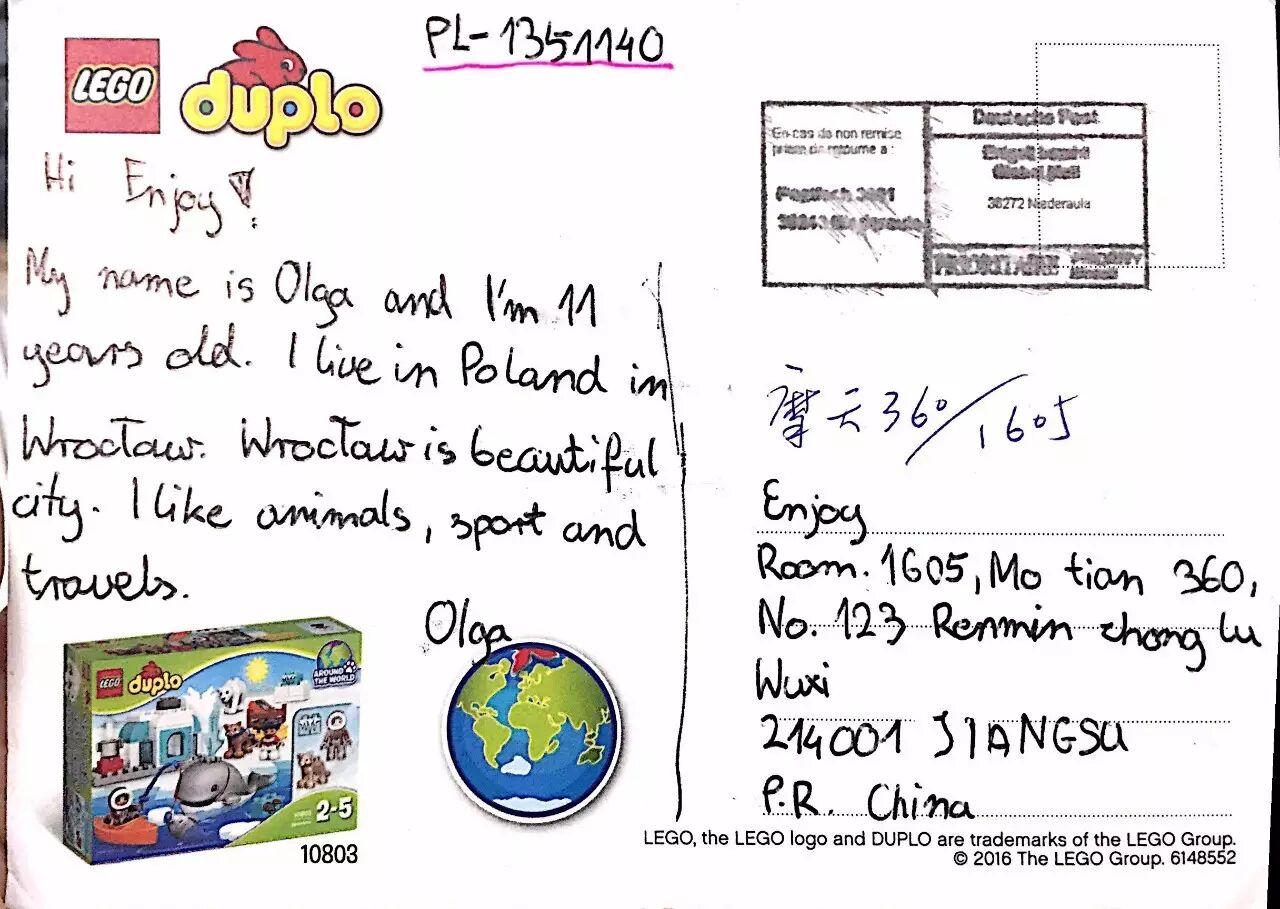 PL-1351140
LEGO
duplo
Hi Enjoy!
My name is Olga and I'm 11
years old. I live in Poland in
Wrocław. Wrocław is beautiful
city. I like animals, sport and
travels.
Olga
En cas de non remise
Deutsche Post
36272 Niederaula
摩天360/1605
Enjoy
Room. 1605, Mo tian 360,
No. 123 Renmin zhong lu
Wuxi
214001 JIANGSU
P.R. China
LEGO
duplo
AROUND
THE WORLD
2-5
10803
LEGO, the LEGO logo and DUPLO are trademarks of the LEGO Group.
© 2016 The LEGO Group. 6148552